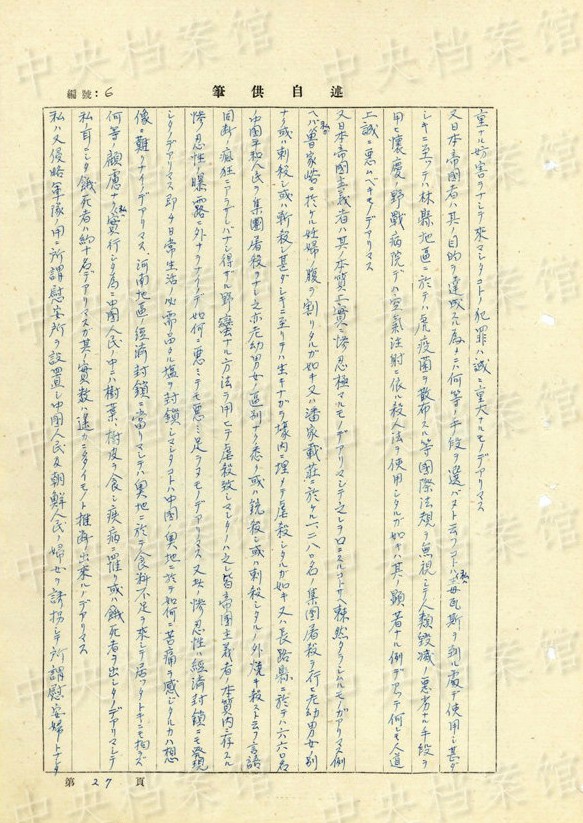 筆供自述
編號：6
重ナル妨害ヲナシテ來マシタコトノ犯罪ハ誠ニ重大ナルモノデアリマス
又日本帝國主義者ハ其ノ目的ヲ達成スル為メニハ何等ノ手段ヲ選バズト云フコトハ毒瓦斯ヲ到ル處デ使用シ甚ダ
シキニ至ッテハ林縣地區ニ於テハ虎疫菌ヲ散布スル等國際法規ヲ無視シテ人類毀滅ノ悪劣ナル手段ヲ
用ヒ懷慶ノ野戰病院デハ空氣注射ニ依ル殺人法ヲ使用シタルガ如キハ其ノ顯著ナル例デアッテ何レモ人道
上誠ニ悪ムベキモノデアリマス
又日本帝國主義者ハ其ノ本質上實ニ惨忍極マルモノデアリマシテ之レヲ口ニスルコトサヘ慄然タラシムルモノガアリマス例
ヘバ魯家峪ニ於ケル妊婦ノ腹ヲ割リタルガ如キ又ハ潘家戴莊ニ於ケル一、二八〇名ノ集團屠殺ヲ行ヒ老幼男女ノ別
ナク或ハ刺殺シ或ハ斬殺シ甚ダシキニ至リテハ生キナガラ壕内ニ埋メテ虐殺シタルガ如キ又ハ長路縣ニ於テハ六六〇名
中國平和人民ヲ集團屠殺ヲナシ之亦老幼男女ノ區別ナク悉ク或ハ銃殺シ或ハ刺殺シタルノ外燒キ殺スト云フ言語
同断ノ瘋狂ニアラザレバナシ得ザル野蠻ナル方法ヲ用ヒテ虐殺致シマシタノハ之レ皆帝國主義者ノ本質内ニ存スル
惨忍性ノ曝露ニ外ナラナイノデ如何ニ悪ミテモ悪ミ足ラヌモノデアリマス又此ノ惨忍性ハ經濟封鎖ニモ發現
シタノデアリマス即チ日常生活ノ必需品タル塩ヲ封鎖シマシタコトハ中國ノ奥地ニ於テ如何ニ苦痛ヲ感ジタルカハ想
像ニ難クナイノデアリマス、河南地區經濟封鎖ニ當リマシテハ奥地ニ於テ食料不足ヲ來シテ居ッタトキニモ拘ラズ
何等ノ顧慮ナク實行シタ為ニ中國人民ノ中ニハ樹葉、樹皮ヲ食シ疾病ニ罹リ或ハ餓死者ヲ出シタノデアリマシテ
私ノ耳ニシタ餓死者ハ約十名デアリマスガ其ノ實数ハ遙カニ多イモノト推断出來ルノデアリマス
私ハ又侵略軍隊ノ用ニ所謂慰安所ヲ設置シ中國人民及朝鮮人民ノ婦女ヲ誘拐シテ所謂慰安婦トナシタ
第27頁
中央档案馆